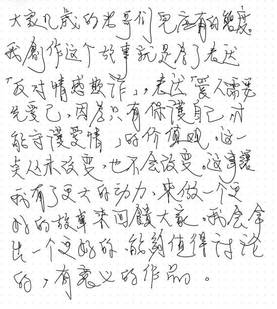 大家几歲的老哥们更应有的態度
我創作这个故事就是为了表达
"反对情感欺诈",表达"爱人需要
先爱己,因为只有保護自己,才
能守護爱情"的价值观。这一
点从未改变,也不会改变。这会讓
我有了更大的动力,来做一个更
好的故事来回饋大家。我会拿
出一个更好的、能夠值得讨论
的,有意义的作品。